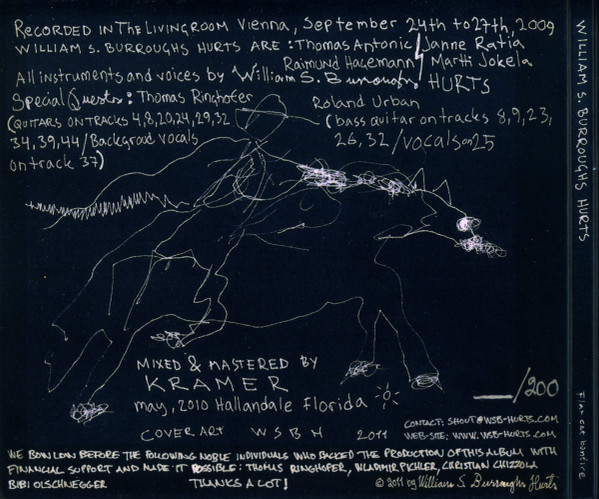 RECORDED IN THE LIVINGROOM VIENNA, SEPTEMBER 24th to 27th, 2009
WILLIAM S. BURROUGHS HURTS ARE : Thomas Antonic / Janne Ratia
Raimund Hagemann / Martti Jokela
All instruments and voices by William S. Burroughs HURTS
Special Guests : Thomas Ringhofer
(GUITARS ON TRACKS 4, 8, 20, 24, 29, 32
34, 39, 44 / Backgroud vocals
on track 37)
Roland Urban
(bass guitar on tracks 8, 9, 23,
26, 32 / vocals on 25
MIXED & MASTERED BY
KRAMER
may, 2010 Hallandale Florida
/200
COVER ART WSBH 2011
CONTACT: SHOUT@WSB-HURTS.COM
WEB-SITE: WWW.WSB-HURTS.COM
WE BOW LOW BEFORE THE FOLLOWING NOBLE INDIVIDUALS WHO BACKED THE PRODUCTION OF THIS ALBUM WITH
FINANCIAL SUPPORT AND MADE IT POSSIBLE : THOMAS RINGHOFER, WLADIMIR PICHLER, CHRISTIAN CHIZZOLA
BIBI OLSCHNEGGER THANCS A LOT!
© 2011 by William S. Burroughs Hurts
WILLIAM S. BURROUGHS HURTS
bonfire